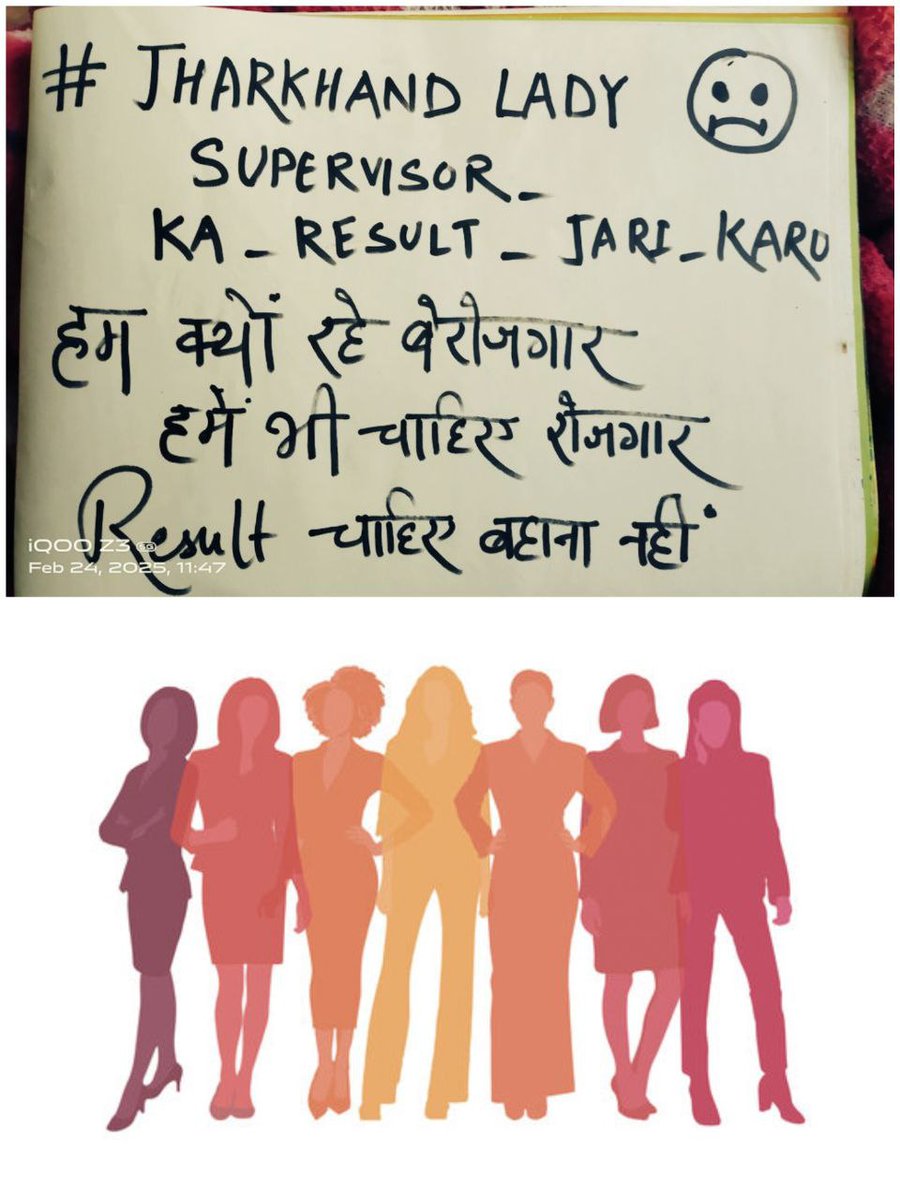 # JHARKHAND LADY
SUPERVISOR_
KA_RESULT_JARI_KARO
हम क्यों रहे बेरोजगार
हमें भी चाहिए रोजगार
Result चाहिए बहाना नहीं
iQOO Z3
Feb 24, 2025, 11:47